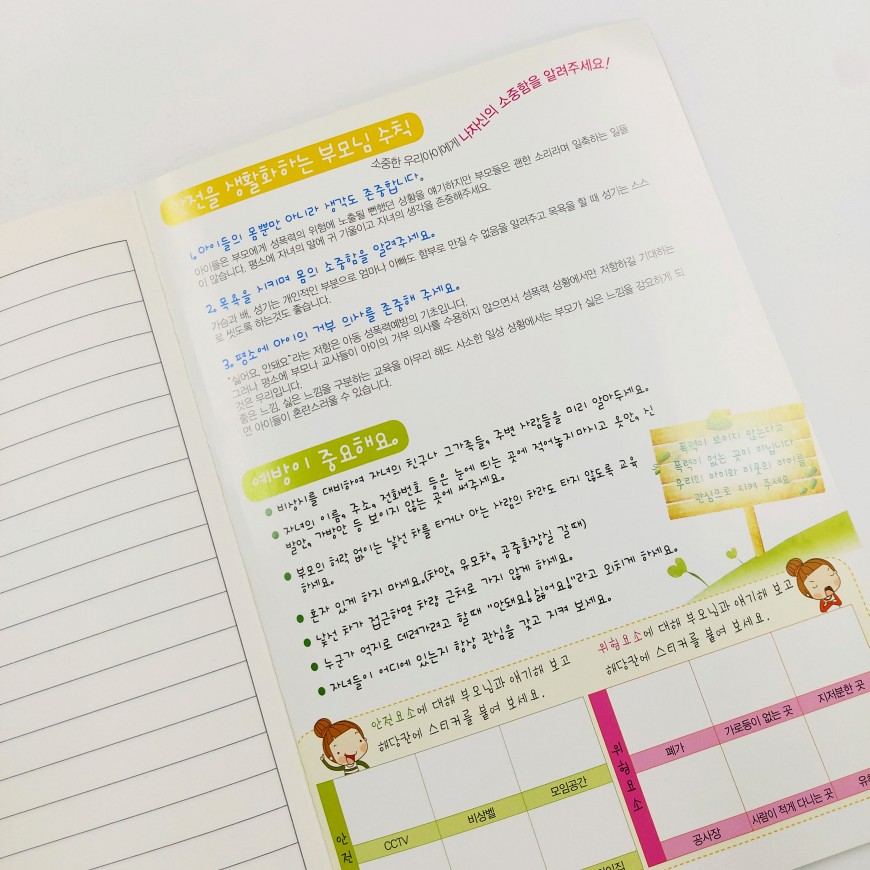 안전을 생활화하는 부모님 수칙
소중한 우리아이에게 나자신의 소중함을 알려주세요!
1. 아이들의 몸뿐만 아니라 생각도 존중합니다.
아이들은 부모에게 성폭력의 위험에 노출될 뻔했던 상황을 얘기하지만 부모들은 괜한 소리라며 일축하는 일들
이 많습니다. 평소에 자녀의 말에 귀 기울이고 자녀의 생각을 존중해주세요.
2. 목욕을 시키며 몸의 소중함을 알려주세요.
가슴과 배, 성기는 개인적인 부분으로 엄마나 아빠도 함부로 만질 수 없음을 알려주고 목욕을 할 때 성기는 스스
로 씻도록 하는것도 좋습니다.
3. 평소에 아이의 거부 의사를 존중해 주세요.
“싫어요, 안돼요”라는 저항은 아동 성폭력예방의 기초입니다.
그러나 평소에 부모나 교사들이 아이의 거부 의사를 수용하지 않으면서 성폭력 상황에서만 저항하길 기대하는
것은 무리입니다.
좋은 느낌, 싫은 느낌을 구분하는 교육을 아무리 해도 사소한 일상 상황에서는 부모가 싫은 느낌을 강요하게 되
면 아이들이 혼란스러울 수 있습니다.
예방이 중요해요.
비상시를 대비하여 자녀의 친구나 그가족들, 주변 사람들을 미리 알아두세요.
자녀의 이름, 주소, 전화번호 등은 눈에 띄는 곳에 적어놓지마시고 옷안, 신
발안, 가방안 등 보이지 않는 곳에 써주세요.
부모의 허락 없이는 낯선 차를 타거나 아는 사람의 차라도 타지 않도록 교육
하세요.
혼자 있게 하지 마세요.(차안, 유모차, 공중화장실 갈때)
낯선 차가 접근하면 차량 근처로 가지 않게 하세요.
누군가 억지로 데려가려고 할때 "안돼요! 싫어요!"라고 외치게 하세요.
자녀들이 어디에 있는지 항상 관심을 갖고 지켜 보세요.
폭력이 보이지 않는다고
폭력이 없는 곳이 아닙니다
우리의 아이와 이웃의 아이를
관심으로 지켜 주세요
안전요소에 대해 부모님과 얘기해 보고
해당칸에 스티커를 붙여 보세요.
안전
CCTV
비상벨
모임공간
위험요소에 대해 부모님과 얘기해 보고
해당칸에 스티커를 붙여 보세요.
위험요소
폐가
가로등이 없는 곳
지저분한 곳
공사장
사람이 적게 다니는 곳